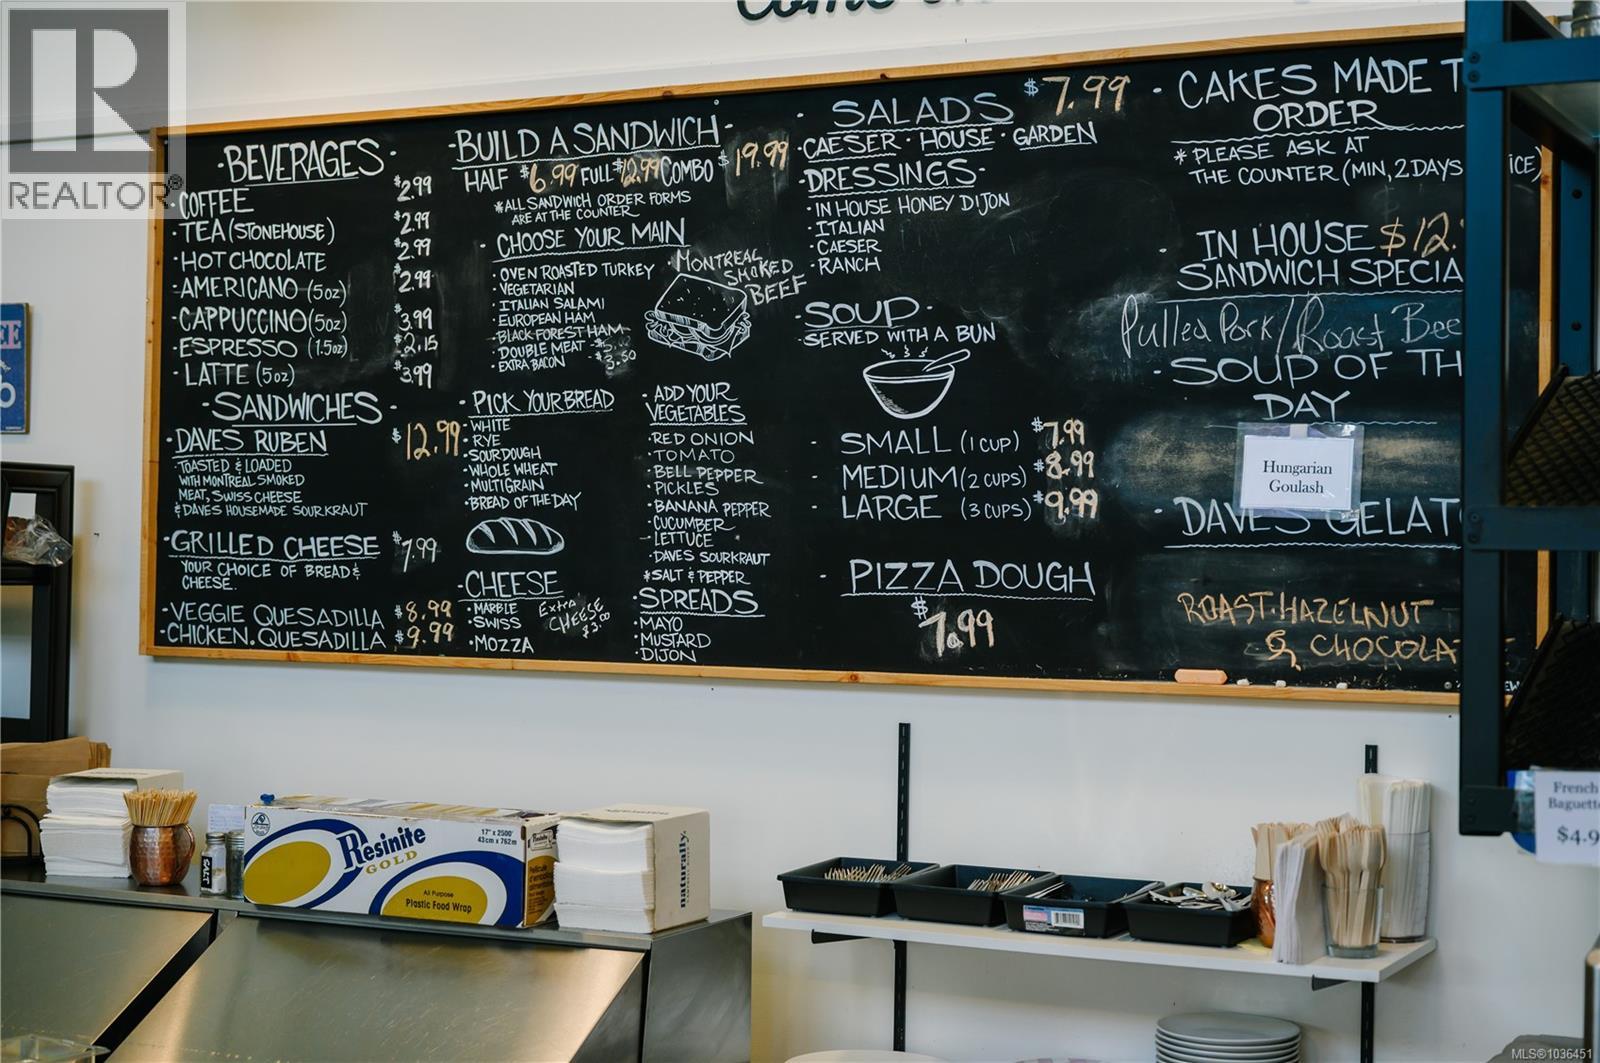 REALTOR®
BEVERAGES
COFFEE $2.99
TEA (STONEHOUSE) $2.99
HOT CHOCOLATE $2.99
AMERICANO (5oz) $2.99
CAPPUCCINO (5oz) $3.99
ESPRESSO (1.5oz) $2.15
LATTE (5oz) $3.99
SANDWICHES
DAVES RUBEN $12.99
TOASTED & LOADED
WITH MONTREAL SMOKED
MEAT, SWISS CHEESE
& DAVES HOUSEMADE SOURKRAUT
GRILLED CHEESE $7.99
YOUR CHOICE OF BREAD &
CHEESE.
VEGGIE QUESADILLA $8.99
CHICKEN QUESADILLA $9.99
BUILD A SANDWICH
HALF $6.99 FULL $12.99 COMBO $19.99
*ALL SANDWICH ORDER FORMS
ARE AT THE COUNTER
CHOOSE YOUR MAIN
OVEN ROASTED TURKEY
VEGETARIAN
ITALIAN SALAMI
EUROPEAN HAM
BLACK FOREST HAM
DOUBLE MEAT
EXTRA BACON $3.50
MONTREAL
SMOKED
BEEF
PICK YOUR BREAD
WHITE
RYE
SOURDOUGH
WHOLE WHEAT
MULTIGRAIN
BREAD OF THE DAY
CHEESE
MARBLE
SWISS
MOZZA
Extra
CHEESE
$3.00
ADD YOUR
VEGETABLES
RED ONION
TOMATO
BELL PEPPER
PICKLES
BANANA PEPPER
CUCUMBER
LETTUCE
DAVES SOURKRAUT
*SALT & PEPPER
SPREADS
MAYO
MUSTARD
DIJON
SALADS $7.99
CAESER · HOUSE · GARDEN
DRESSINGS
IN HOUSE HONEY DIJON
ITALIAN
CAESER
RANCH
SOUP
SERVED WITH A BUN
SMALL (1 CUP) $7.99
MEDIUM (2 CUPS) $8.99
LARGE (3 CUPS) $9.99
PIZZA DOUGH
$7.99
CAKES MADE T
ORDER
*PLEASE ASK AT
THE COUNTER (MIN, 2 DAYS ICE)
IN HOUSE $12.
SANDWICH SPECIA
Pulled Pork/Roast Bee
SOUP OF TH
DAY
Hungarian
Goulash
DAVES GELAT
ROAST HAZELNUT
& CHOCOLAT
SALT
Resinite
GOLD
17" x 2500'
43cm x 762m
All Purpose
Plastic Food Wrap
naturally
French
Baguette
$4.9
MLS®1036451